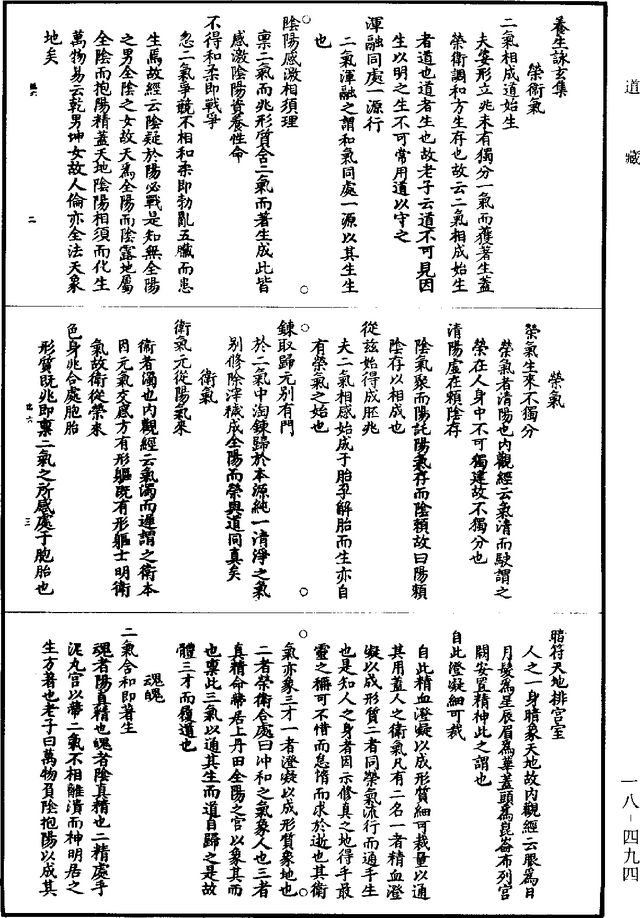 道藏
養生詠玄集
榮衛氣
二氣相成道始生
夫妾形立兆未有獨分一氣而獲著生蓋
榮衛調和方生存也故云二氣相成始生
者道也道者生也故老子云道不可見因
生以明之生不可常用道以守之
渾融同處一源行
二氣渾融之謂和氣同處一源以其生生
也
陰陽感激相須理
稟二氣而兆形質含二氣而著生成此皆
感激陰陽資養性命
不得和柔即戰爭
忽二氣爭競不相和柔即勃亂五臟而患
生焉故經云陰疑於陽必戰是知無全陽
之男全陰之女故天爲全陽而陰露地屬
全陰而抱陽精蓋天地陰陽相須而化生
萬物易云乾男坤女故人倫亦全法天象
地矣
二
榮氣
榮氣生來不獨分
榮氣者清陽也內觀經云氣清而駛謂之
榮在人身中不可獨建故不獨分也
清陽虛在賴陰存
陰氣聚而陽託陽氣存而陰賴故曰陽賴
陰存以相成也
從茲始得成胚兆
夫二氣相感始成于胎孕解胎而生亦自
有榮氣之始也
鍊取歸元別有門
於二氣中淘鍊歸於本源純一清淨之氣
別修除滓穢成全陽而榮與道同真矣
衛氣
衛氣元從陽氣來
衛者濁也內觀經云氣濁而遲謂之衛本
因元氣交感方有形軀既有形軀士明衛
氣故衛從榮來
色身兆合處胞胎
形質既兆即稟二氣之所感處于胞胎也
三
暗符天地排宮室
人之一身暗象天地故內觀經云眼爲日
月髮爲星辰眉爲華蓋頭爲崑崙布列宮
闕安置精神此之謂也
自此澄凝細可裁
自此精血澄凝以成形質細可裁量以通
其用蓋人之衛氣凡有二名一者精血澄
凝以成形質二者同榮氣流行而通乎生
也是知人之身者因示修真之地得乎最
靈之稱可不惜而怠惰而求於逝也其衛
氣亦象三才一者澄凝以成形質象地也
二者榮衛合處曰沖和之氣象人也三者
真精命蒂居上丹田全陽之宮以象其而
也稟此三氣以通其生而道自歸之是故
體三才而履道也
魂魄
二氣合和即著生
魂者陽真精也魄者陰真精也二精處乎
泥丸宮以蒂二氣不相離潰而神明居之
生方著也老子曰萬物負陰抱陽以成其
一八-四九四